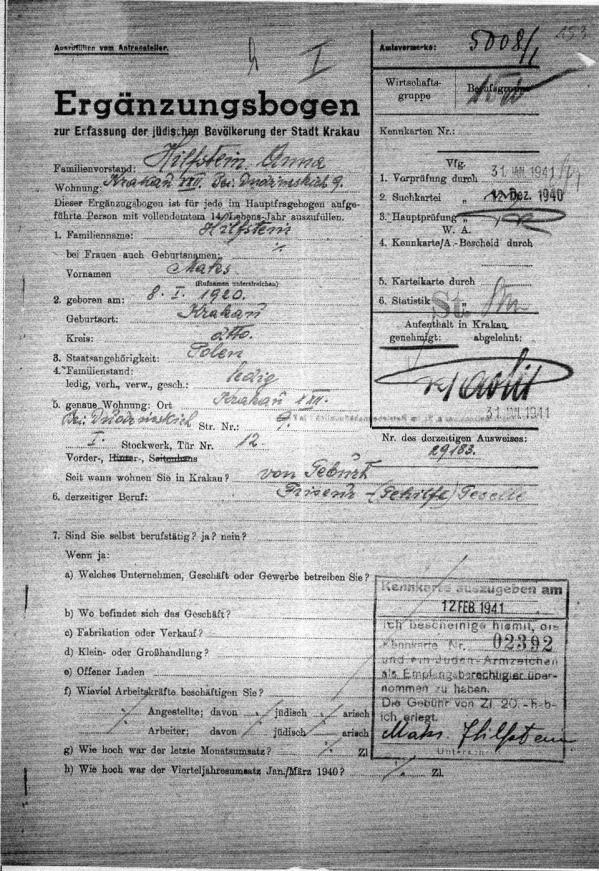 Auszufüllen vom Antragsteller.
h I
Ergänzungsbogen
zur Erfassung der jüdischen Bevölkerung der Stadt Krakau
Familienvorstand: Hilfstein Anna
Wohnung: Krakau XXII. 9.
Dieser Ergänzungsbogen ist für jede im Hauptfragebogen aufge-
führte Person mit vollendetem 14. Lebens-Jahr auszufüllen.
1. Familienname: Hilfstein
bei Frauen auch Geburtsnamen:
Vornamen Maks
(Rufnamen unterstreichen)
2. geboren am: 8. I. 1920.
Geburtsort: Krakau
Kreis: dtto.
3. Staatsangehörigkeit: Polen
4. Familienstand:
ledig, verh., verw., gesch.: ledig
5. genaue Wohnung: Ort Krakau XXII.
Str. Nr.: 9.
I. Stockwerk, Tür Nr. 12.
Vorder-, Hinter-, Seitenhaus
Seit wann wohnen Sie in Krakau? von Geburt
6. derzeitiger Beruf: Friseur-(Gehilfe) Geselle
7. Sind Sie selbst berufstätig? ja? nein?
Wenn ja:
a) Welches Unternehmen, Geschäft oder Gewerbe betreiben Sie?
b) Wo befindet sich das Geschäft?
c) Fabrikation oder Verkauf?
d) Klein- oder Großhandlung?
e) Offener Laden
f) Wieviel Arbeitskräfte beschäftigen Sie?
Angestellte; davon jüdisch arisch
Arbeiter; davon jüdisch arisch
g) Wie hoch war der letzte Monatsumsatz? Zl.
h) Wie hoch war der Vierteljahresumsatz Jan./März 1940? Zl.
153
Amtsvermerke: 5008/1
Wirtschafts-
gruppe
Berufsgruppe
Kennkarten Nr.:
Vfg.
1. Vorprüfung durch 31 JAN. 1941
2. Suchkartei „ 12 Dez. 1940
3. Hauptprüfung „
W. A.
4. Kennkarte/A.-Bescheid durch
5. Karteikarte durch
6. Statistik „ St.
Aufenthalt in Krakau
genehmigt: abgelehnt:
31 JAN. 1941
Nr. des derzeitigen Ausweises:
29183.
Kennkarte auszugeben am
12 FEB. 1941
Ich bescheinige hiemit, die
Kennkarte Nr. 02392
und ein Juden-Armzeichen
als Empfangsberechtigter über-
nommen zu haben.
Die Gebühr von Zl. 20.- hab-
ich erlegt.
Maks Hilfstein
Unterschrift